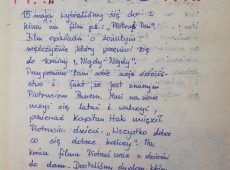 15 maja wybraliśmy się do
kina film pt. „Piotruś Pan".
Film opowiada o żonatym
mężczyźnie, który przeniósł się
do krainy „Nigdy Nigdy".
Przypomniał tam sobie swoje dzieciń-
stwo i fakt, że jest znanym
Piotrusiem Panem. Musi na nowo
uczyć się latać i walczyć,
ponieważ Kapitan Hak uwięził
Piotrusia dzieci. „Wszystko dobre
co się dobrze kończy". Na
końcu filmu Piotruś wraz z dziećmi
do domu. Dostaliśmy